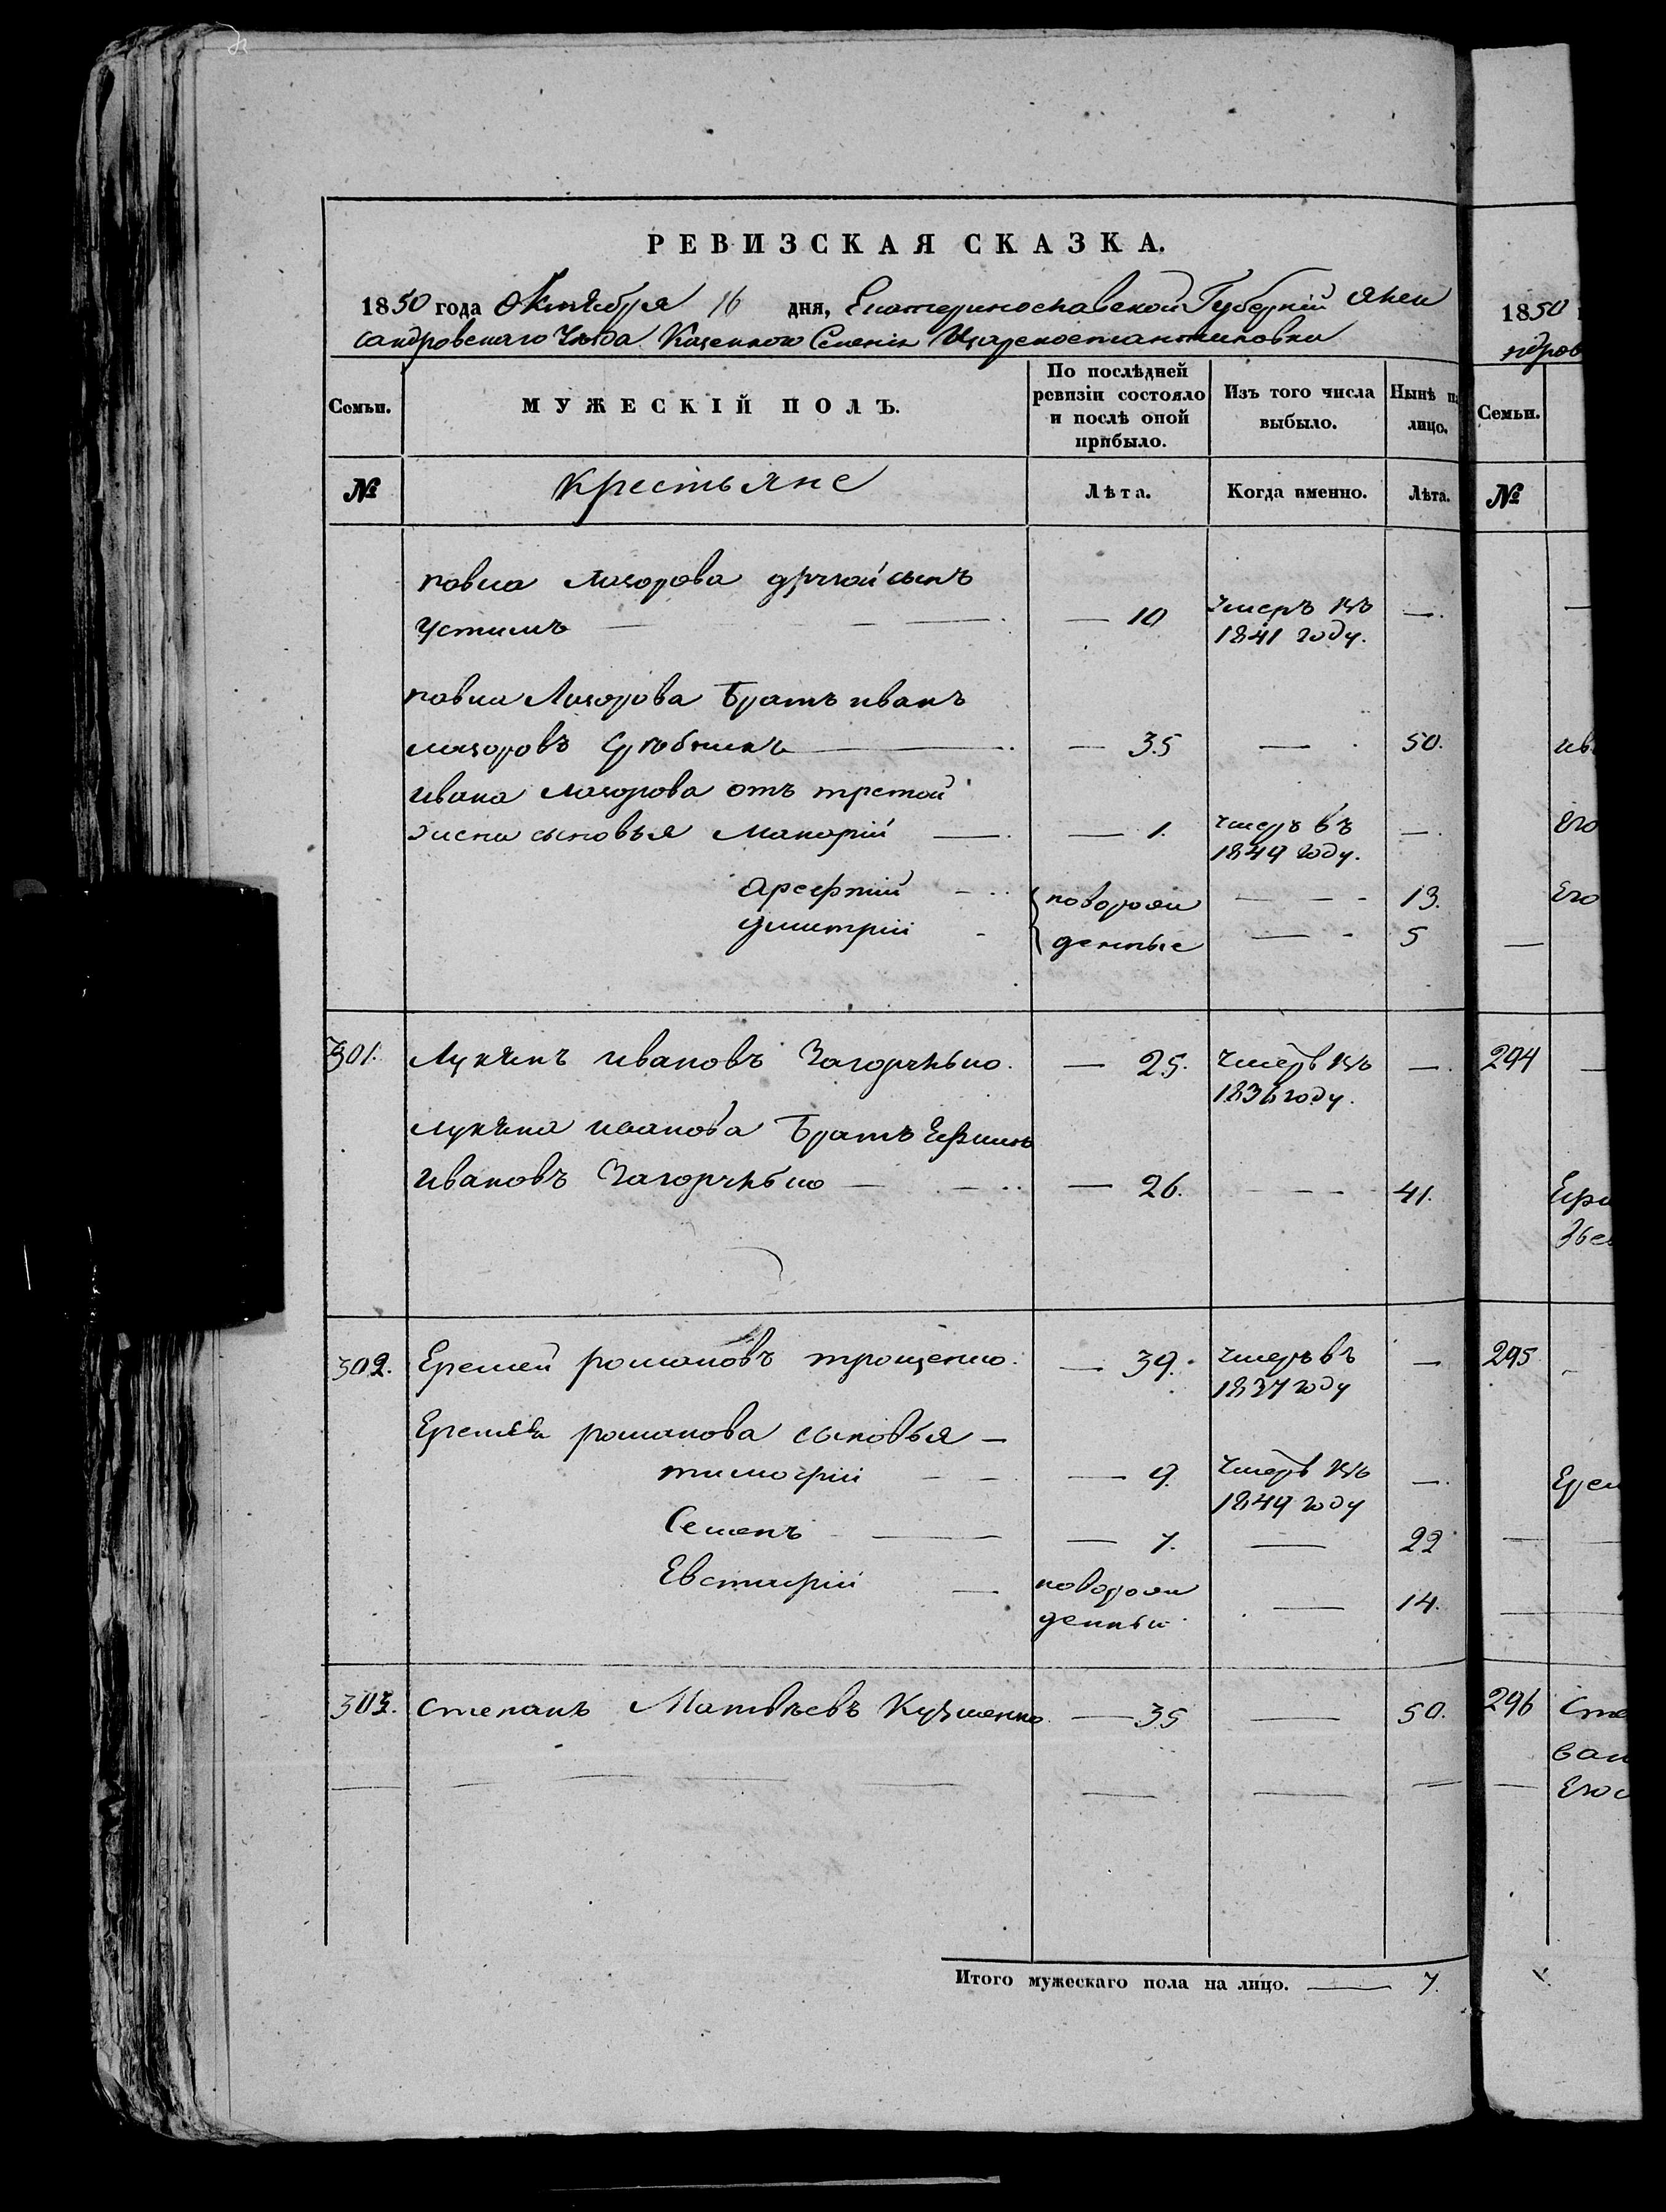 РЕВИЗСКАЯ СКАЗКА.
1850 года Октября 16 дня, Екатеринославской Губерніи Алек
сандровскаго Уѣзда Казенного Селенія Царекостантиновки
Семьи.
МУЖЕСКІЙ ПОЛЪ.
По послѣдней ревизіи состояло и послѣ оной прибыло.
Изъ того числа выбыло.
Нынѣ н
лицо.
№
Крестьяне
Лѣта.
Когда именно.
Лѣта.
павла Лазорова другой сынъ
устимъ — 10 умеръ въ —
1841 году.
павла Лазорова Братъ иванъ
лазоровъ — 35 — 50.
ивана лазорова отъ третой
жены сыновья Макарій — 1. умеръ въ —
1849 году.
Арсефтій новорож — 13.
дмитрій денные — 5
301. Лукянъ ивановъ — 25. умеръ въ —
1836 году.
лукяна иванова Братъ Ефимъ
ивановъ — 26. — 41.
302. Еремей романовъ трощенко. — 39. умеръ въ —
1837 году
Еремея романова сыновья —
тимофій — 9. умеръ въ —
1849 году
Семенъ — 7. — 22
Евстафій — новорож — 14.
денный
303. степанъ Матвѣевъ Кузменко — 35 — 50.
Итого мужескаго пола на лицо. — 7.
1850
ндров
Семьи.
№
294
295
296